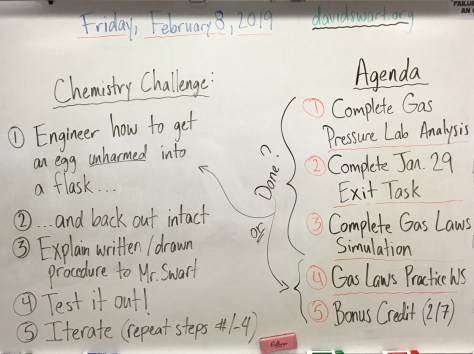 Friday, February 8, 2019
davidswart.org
Chemistry Challenge:
① Engineer how to get
an egg unharmed into
a flask...
② ...and back out intact
③ Explain written/drawn
procedure to Mr. Swart
④ Test it out!
⑤ Iterate (repeat steps #1-4)
Done?
or
Agenda
① Complete Gas
Pressure Lab Analysis
② Complete Jan. 29
Exit Task
③ Complete Gas Laws
Simulation
④ Gas Laws Practice WS
⑤ Bonus Credit (2/7)